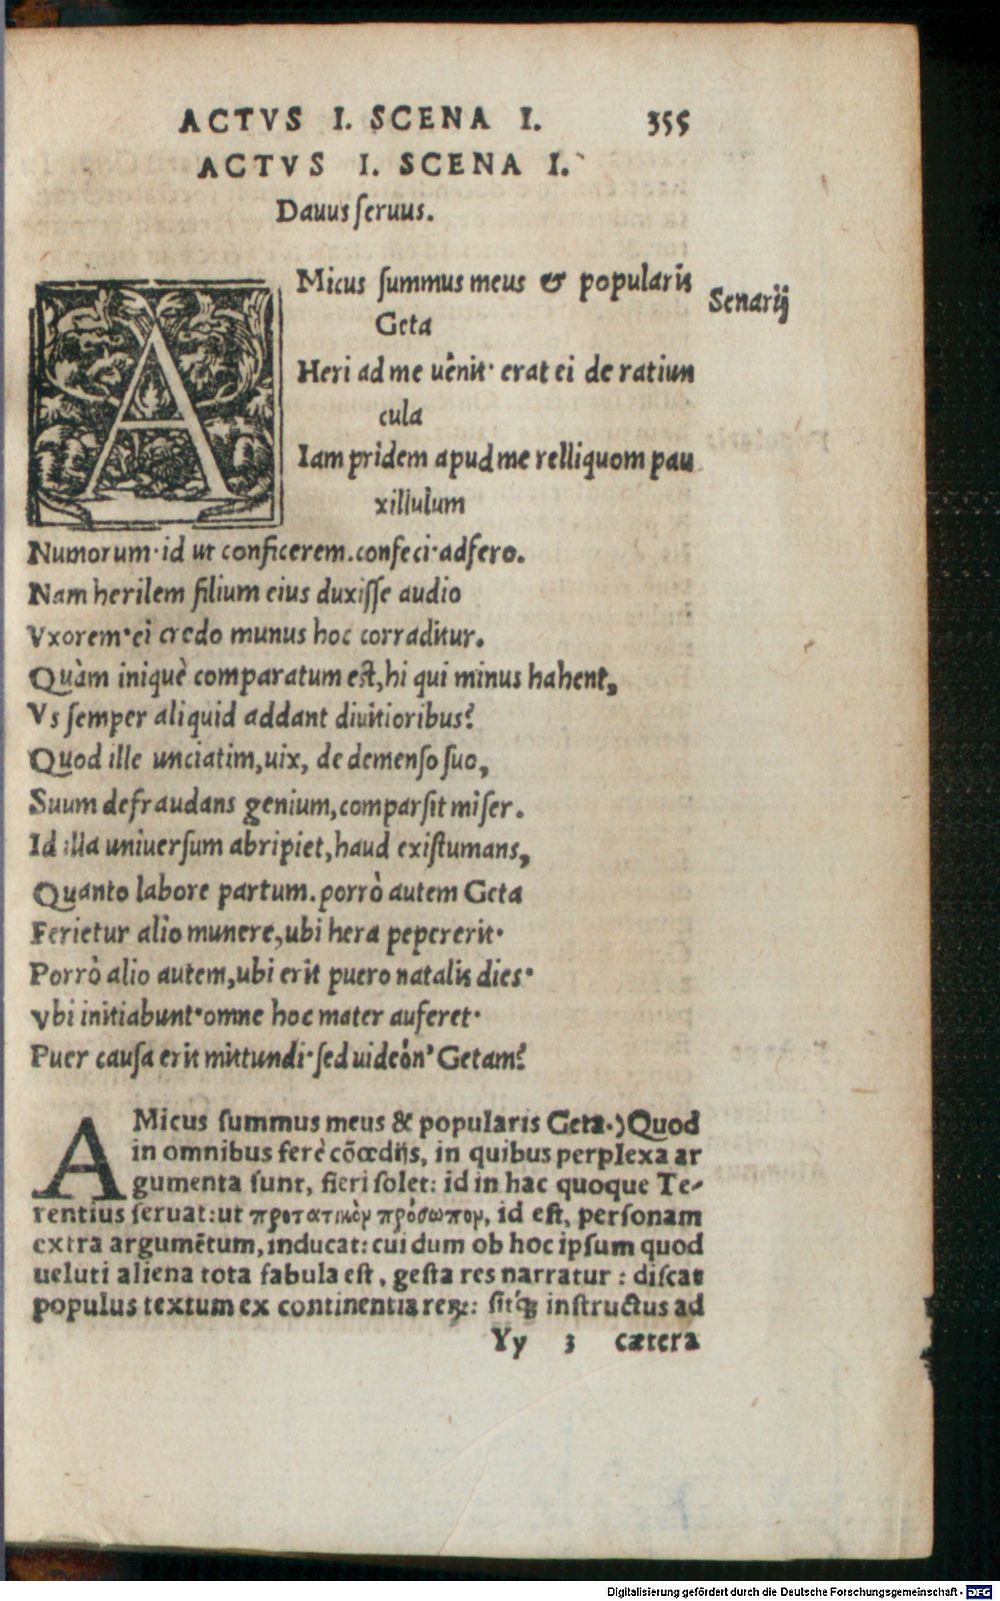 ACTVS I. SCENA I. 355
ACTVS I. SCENA I.
Dauus ſeruus.
AMicus ſummus meus & popularis
Geta
Senarij
Heri ad me uênit· erat ei de ratiun
cula
Iam pridem apud me relliquom pau
xillulum
Numorum· id ut conficerem. confeci· adfero.
Nam herilem filium eius duxiſſe audio
Vxorem· ei credo munus hoc corraditur.
Quàm iniquè comparatum est, hi qui minus hahent,
Vs ſemper aliquid addant diuitioribus?
Quod ille unciatim, uix, de demenſo ſuo,
Suum defraudans genium, comparſit miſer.
Id illa uniuerſum abripiet, haud exiſtumans,
Quanto labore partum. porrò autem Geta
Ferietur alio munere, ubi hera pepererit·
Porrò alio autem, ubi erit puero natalis dies·
Vbi initiabunt· omne hoc mater auferet·
Puer cauſa erit mittundi· ſed uideón' Getam?
AMicus ſummus meus & popularis Geta.) Quod
in omnibus ferè cõœdijs, in quibus perplexa ar
gumenta ſunt, fieri ſolet: id in hac quoque Te-
rentius ſeruat: ut προτατικὸν πρόσωπον, id eſt, perſonam
extra argumẽtum, inducat: cui dum ob hoc ipſum quod
ueluti aliena tota fabula eſt, geſta res narratur: diſcat
populus textum ex continentia reꝝ: ſitq́ꝫ inſtructus ad
Yy 3 cætera
Digitalisierung gefördert durch die Deutsche Forschungsgemeinschaft - DFG